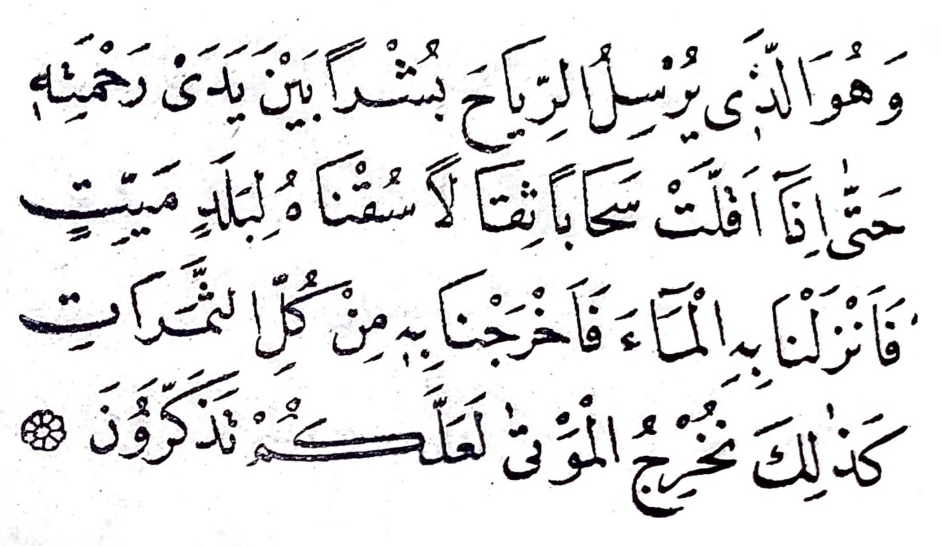 وَهُوَ الَّذٖى يُرْسِلُ الرِّيَاحَ بُشْراً بَيْنَ يَدَىْ رَحْمَتِهٖ
حَتّٰى اِذَٓا اَقَلَّتْ سَحَاباً ثِقَالاً سُقْنَاهُ لِبَلَدٍ مَيِّتٍ
فَاَنْزَلْنَا بِهِ الْمَٓاءَ فَاَخْرَجْنَا بِهٖ مِنْ كُلِّ الثَّمَرَاتِ
كَذٰلِكَ نُخْرِجُ الْمَوْتٰى لَعَلَّكُمْ تَذَكَّرُونَ